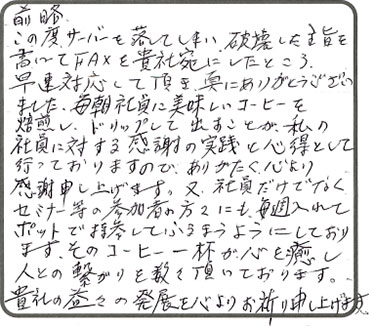 前略
この度サーバーを落してしまい、破壊した主旨を
書いてFAXを貴社宛にしたところ、
早速対応して頂き、真にありがとうござい
ました。毎朝社員に美味しいコーヒーを
焙煎し、ドリップして出すことが、私の
社員に対する感謝の実践と心得として
行っておりますので、ありがたく心より
感謝申し上げます。又、社員だけでなく
セミナー等の参加者の方々にも、毎週入れて
ポットで持参してふるまうようにしており
ます。そのコーヒー一杯が心を癒し
人との繋がりを数々頂いております。
貴社の益々の発展を心よりお祈り申し上げます。